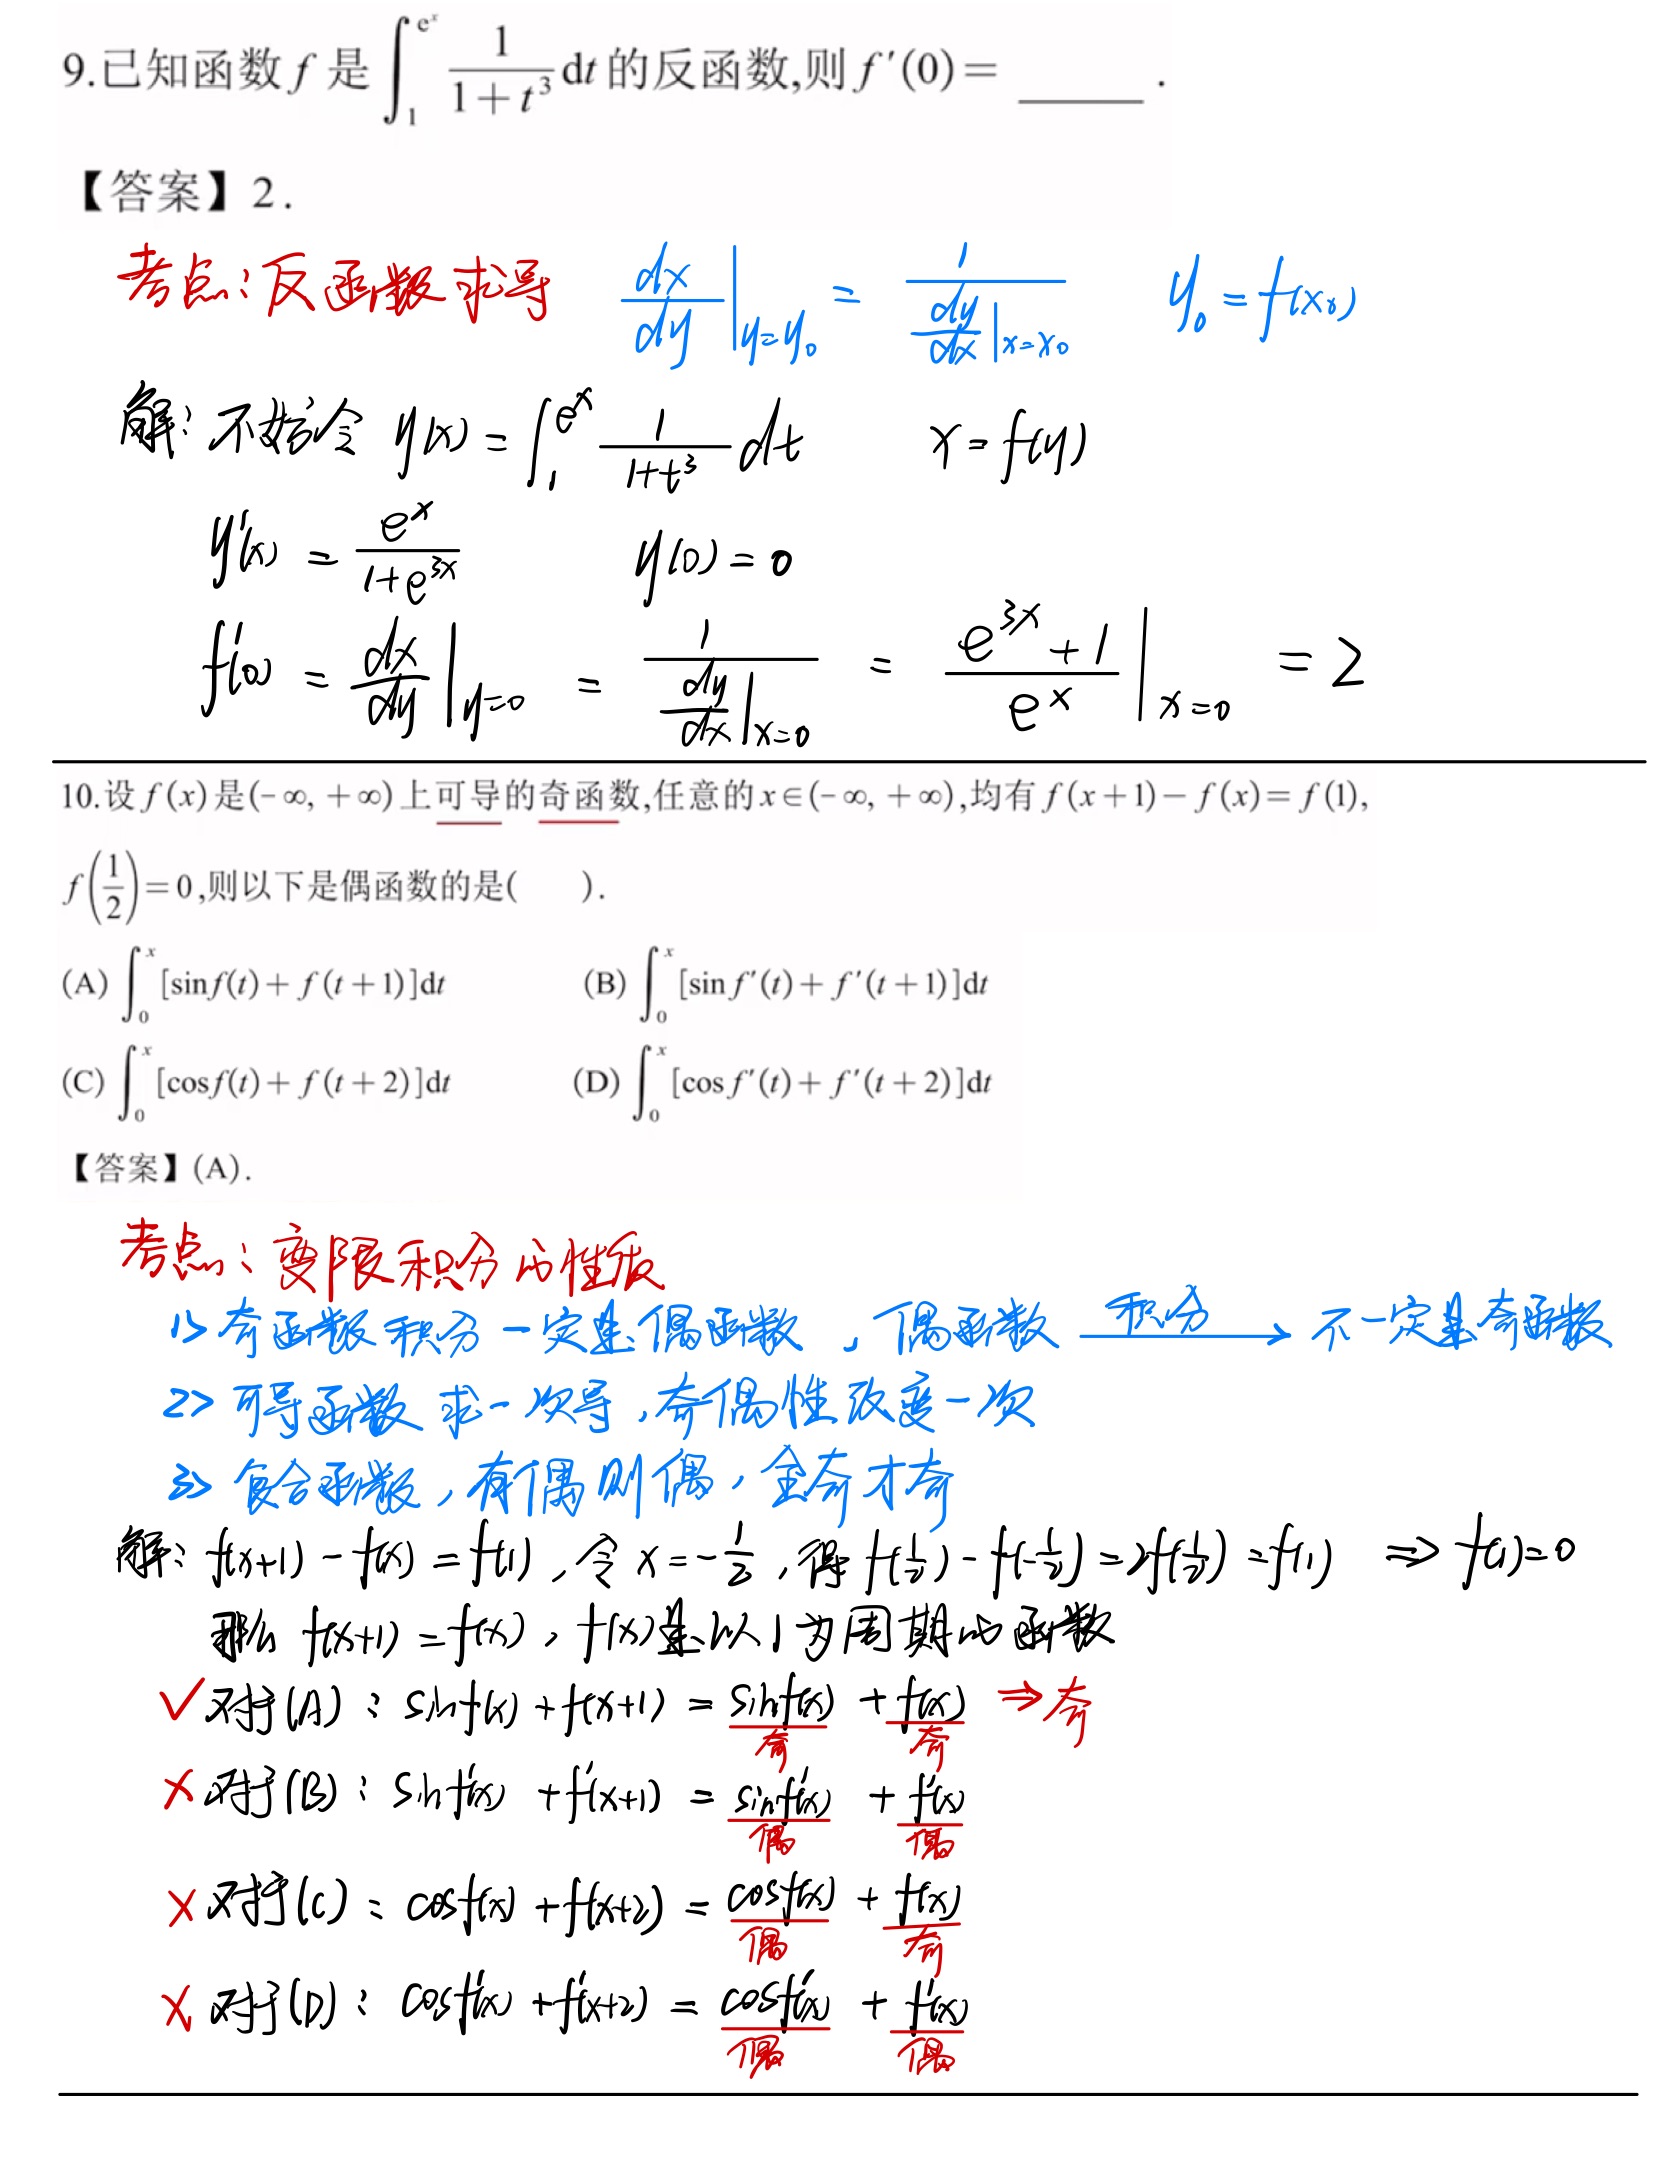 9.已知函数 f 是 ∫₁^{eˣ} 1/(1+t³) dt 的反函数,则 f′(0)= ______ .
【答案】2.
考点:反函数求导 dx/dy|_{y=y₀} = 1/(dy/dx|_{x=x₀}) y₀=f(x₀)
解:不妨令 y(x)=∫₁^{eˣ} 1/(1+t³) dt x=f(y)
y′(x) = eˣ/(1+e^{3x}) y(0)=0
f′(0) = dx/dy|_{y=0} = 1/(dy/dx|_{x=0}) = (e^{3x}+1)/eˣ|_{x=0} =2
10.设 f(x)是(-∞, +∞)上可导的奇函数,任意的x∈(-∞, +∞),均有 f(x+1)-f(x)=f(1),
f(1/2)=0,则以下是偶函数的是( ).
(A) ∫₀ˣ [sinf(t)+f(t+1)]dt (B) ∫₀ˣ [sin f′(t)+f′(t+1)]dt
(C) ∫₀ˣ [cosf(t)+f(t+2)]dt (D) ∫₀ˣ [cos f′(t)+f′(t+2)]dt
【答案】(A).
考点:变限积分的性质
1> 奇函数积分一定是偶函数,偶函数 积分→ 不一定是奇函数
2> 可导函数求一次导,奇偶性改变一次
3> 复合函数,有偶则偶,全奇才奇
解:f(x+1)-f(x)=f(1),令x=-1/2,得f(1/2)-f(-1/2)=2f(1/2)=f(1) ⇒ f(1)=0
那么 f(x+1)=f(x),f(x)是以1为周期的函数
✓对于(A):sinf(x)+f(x+1)=sinf(x)+f(x) ⇒奇
奇 奇
×对于(B):sinf′(x)+f′(x+1)=sinf′(x)+f′(x)
偶 偶
×对于(C):cosf(x)+f(x+2)=cosf(x)+f(x)
偶 奇
×对于(D):cosf′(x)+f′(x+2)=cosf′(x)+f′(x)
偶 偶